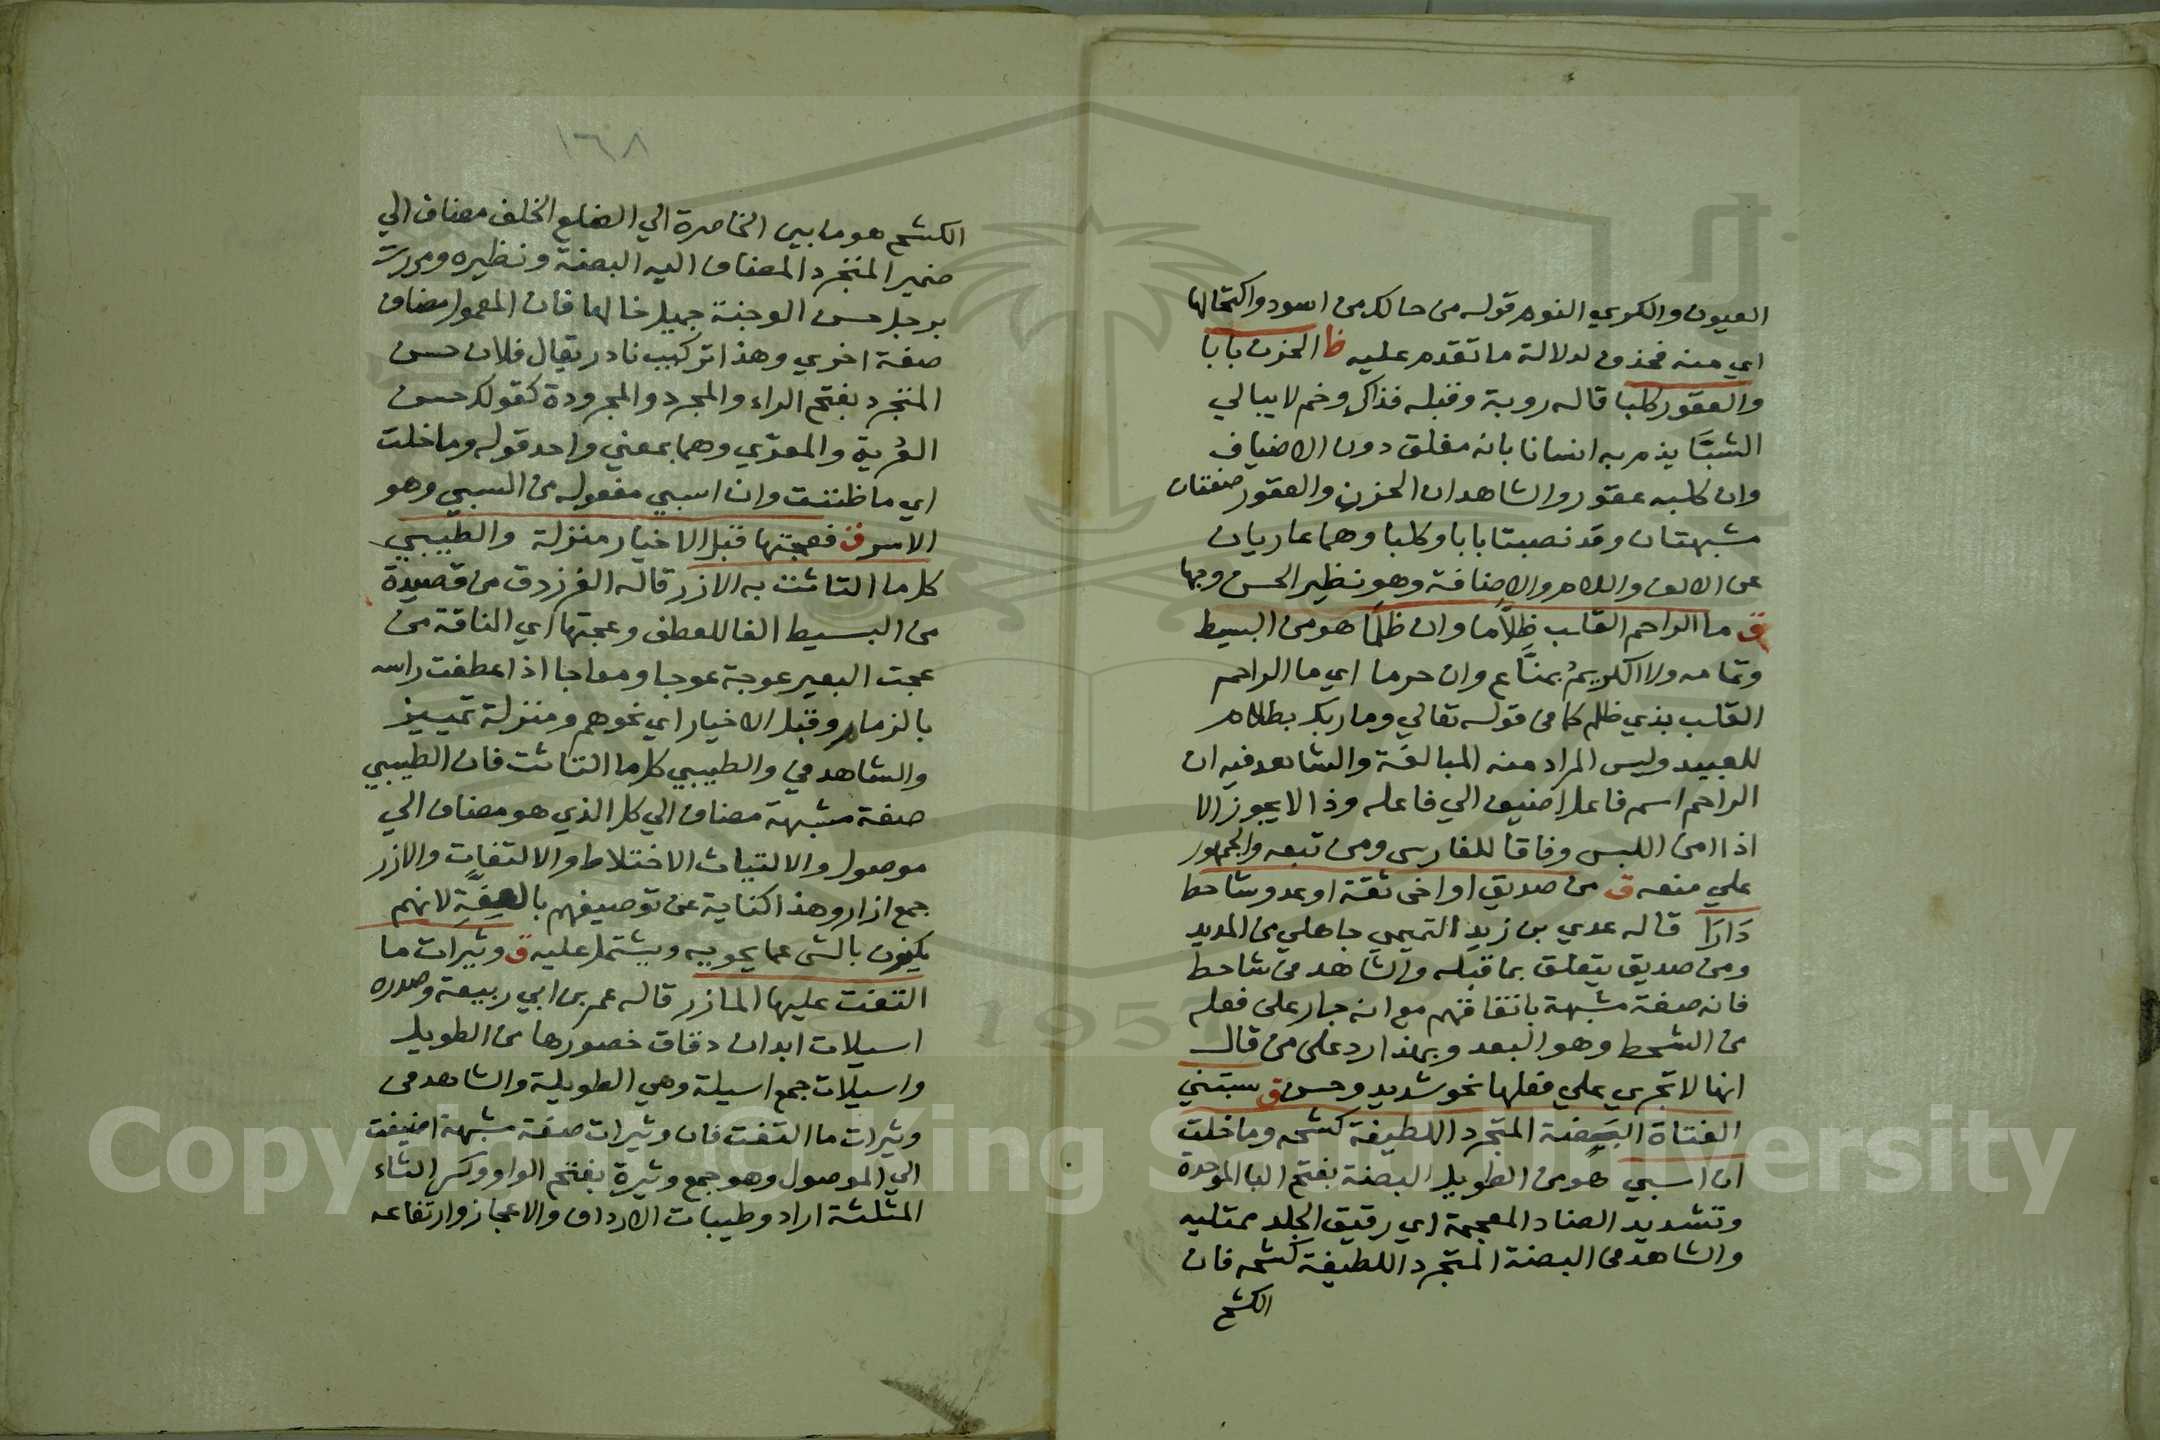 العيون والكري النوم قوله من حالك من اسود واكتحالها
اي منه فحذف لدلالة ما تقدم عليه ظ الحزن بابا
والعقور كلبا قاله روبة وقبله فذاك وخم لا يبالي
السَّبَّا يذم به انسانا بانه مغلق دون الاضياف
وان كلبه عقور والشاهد ان الحزن والعقور صفتان
مشبهتان وقد نصبتا بابا وكلبا وهما عاريان
عن الالف واللام والاضافة وهو نظير الحسن وجها
ق ما الراحم القلب ظلَّاما وان ظلما هو من البسيط
وتمامه ولا الكريمُ بمنَّاع وان حرما اي ما الراحم
القلب بذي ظلم كما في قوله تعالي وما ربك بظلام
للعبيد وليس المراد منه المبالغة والشاهد فيه ان
الراحم اسم فاعل اضيف الي فاعله وذا لا يجوز الا
اذا امن اللبس وفاقا للفارسي ومن تبعه والجمهور
علي منعه ق من صديق او اخي ثقة او عدو شاحط
دَارَا قاله عدي بن زيد التميمي جاهلي من المديد
ومن صديق يتعلق بما قبله والشاهد في شاحط
فانه صفة مشبهة باتفاقهم مع انه جار علي فعله
من الشحط وهو البعد وبهذا رد علي من قال
انها لا تجري علي فعلها نحو شديد وحسن ق سبتني
الفتاة البَضة المتجرد اللطيفة كشحه وما خلت
ان اسبي هو من الطويل البضة بفتح البا الموحدة
وتشديد الضاد المعجمة اي رقيق الجلد ممتليه
والشاهد في البضة المتجرد اللطيفة كشحه فان
الكشح
١٦٨
الكشح هو ما بين الخاصرة الي الضلع الخلف مضاف الي
ضمير المتجرد المضاف اليه البضة ونظيره ومررت
برجل حسن الوجنة جميل خالها فان المعمول مضاف
صفة اخري وهذا تركيب نادر يقال فلان حسن
المتجرد بفتح الراء والمجرد والمجرودة كقولك حسن
العُرية والمعرّي وهما بمعني واحد قوله وما خلت
اي ما ظننت وان اسبي مفعوله من السبي وهو
الاسر ق فعجتها قبل الاخيار منزلة والطيبي
كل ما التاثت به الازر قاله الفرزدق من قصيدة
من البسيط الفا للعطف وعجتها اي الناقة من
عجت البعير عوجة عوجا ومعاجا اذا عطفت راسه
بالزمام وقبل الاخيار اي نحوهم ومنزلة تمييز
والشاهد في والطيبي كل ما التاثت فان الطيبي
صفة مشبهة مضاف الي كل الذي هو مضاف الي
موصول والالتياث الاختلاط والالتفات والازر
جمع ازار وهذا كناية عن توصيفهم بالعِفَّةِ لانهم
يكنون بالشي عما يحويه ويشتمل عليه ق وثيرات ما
التفت عليها المازر قاله عمر بن ابي ربيعة وصدره
اسيلات ابدان دقاق خصورها من الطويل
واسيلات جمع اسيلة وهي الطويلة والشاهد في
وثيرات ما التفت فان وثيرات صفة مشبهة اضيفت
الي الموصول وهو جمع وثيرة بفتح الواو وكسر الثاء
المثلثة اراد وطيبات الارداف والاعجاز وارتفاعه
1957
Copyright © King Saud University